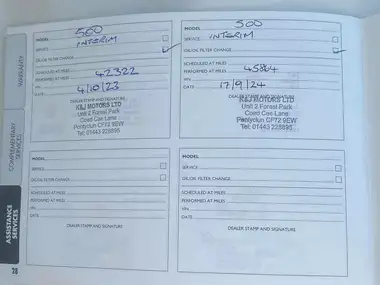 WARRANTY
COMPLEMENTARY SERVICES
ASSISTANCE SERVICES
MODEL 500
SERVICE INTERIM
OIL/OIL FILTER CHANGE ✓
SCHEDULED AT MILES
PERFORMED AT MILES 42322
VIN
DATE 4/10/23
DEALER STAMP AND SIGNATURE
K&J MOTORS LTD
Unit 2 Forest Park
Coed Cae Lane
Pontyclun CF72 9EW
Tel: 01443 228895
MODEL 500
SERVICE INTERIM
OIL/OIL FILTER CHANGE ✓
SCHEDULED AT MILES
PERFORMED AT MILES
VIN
DATE 17/9/24
DEALER STAMP AND SIGNATURE
K&J MOTORS LTD
Unit 2 Forest Park
Coed Cae Lane
Pontyclun CF72 9EW
Tel: 01443 228895
MODEL
SERVICE
OIL/OIL FILTER CHANGE
SCHEDULED AT MILES
PERFORMED AT MILES
VIN
DATE
DEALER STAMP AND SIGNATURE
MODEL
SERVICE
OIL/OIL FILTER CHANGE
SCHEDULED AT MILES
PERFORMED AT MILES
VIN
DATE
DEALER STAMP AND SIGNATURE
28